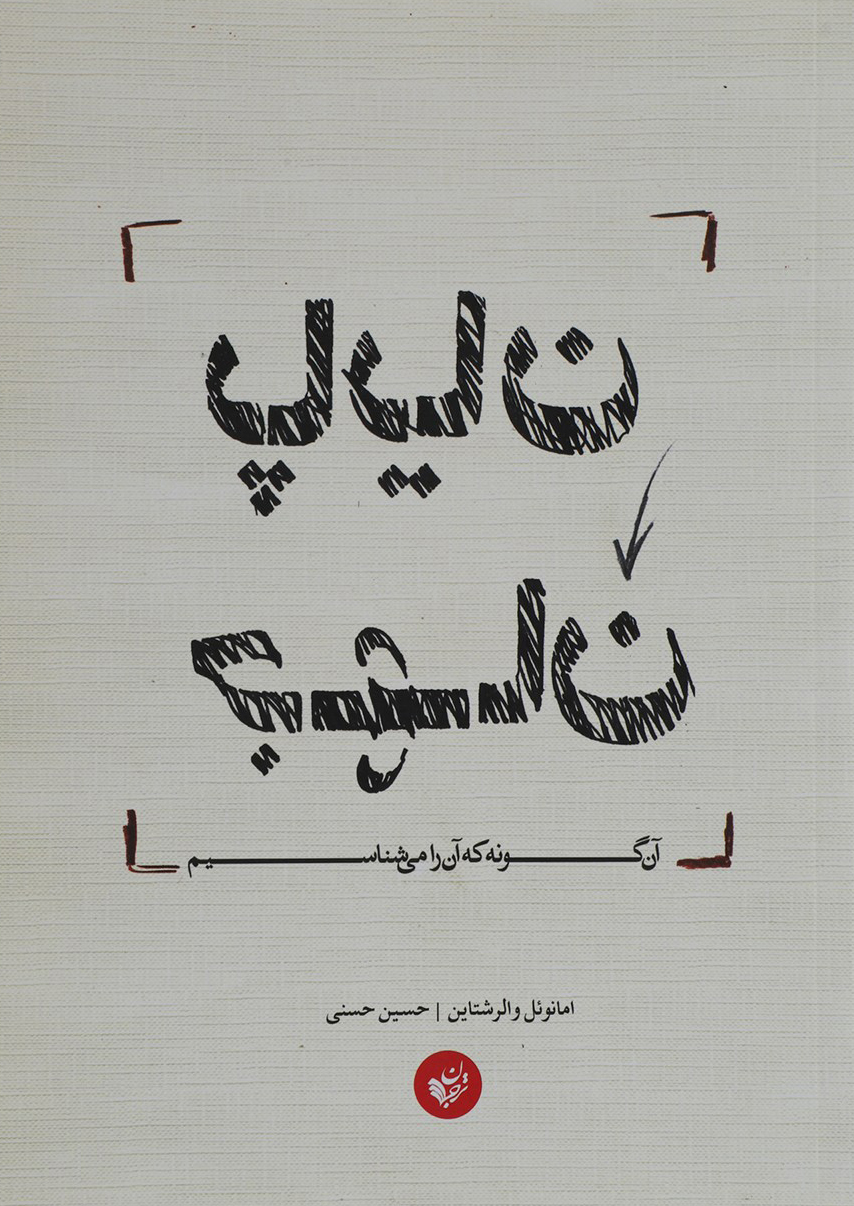 پایان
جهان
آن‌گونه که آن را می‌شناسیم
امانوئل والرشتاین | حسین حسنی
ترجمان